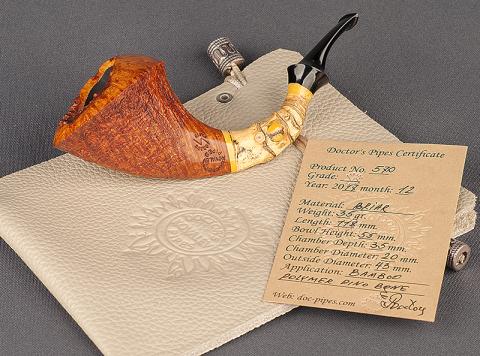 Doctor's Pipes Certificate
Product No. 590
Grade:
Year: 2018 month: 12
Material: BRIAR
Weight: 35 gr.
Length: 118 mm.
Bowl Height: 55 mm.
Chamber Depth: 35 mm.
Chamber Diameter: 20 mm.
Outside Diameter: 43 mm.
Application: BAMBOO
POLYMER DINO BONE
Web: doc-pipes.com